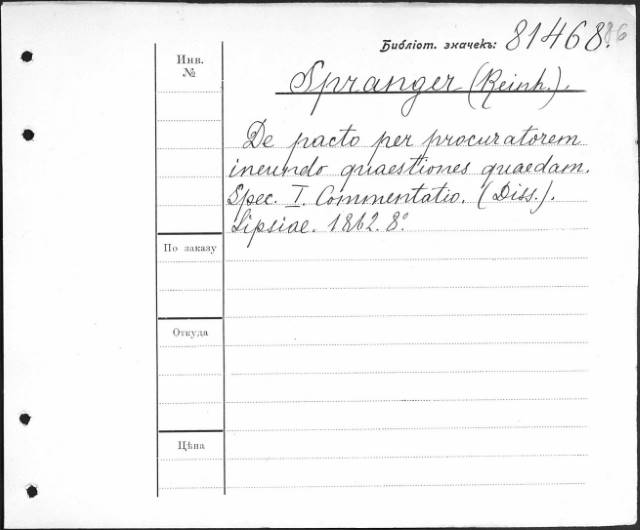 Библіот. значекъ: 81468.
86
Инв.
№
Spranger (Reinh.).
De pacto per procuratorem
ineundo quaestiones quaedam.
Spec. I. Commentatio. (Diss.).
Lipsiae. 1862. 8°
По заказу
Откуда
Цѣна